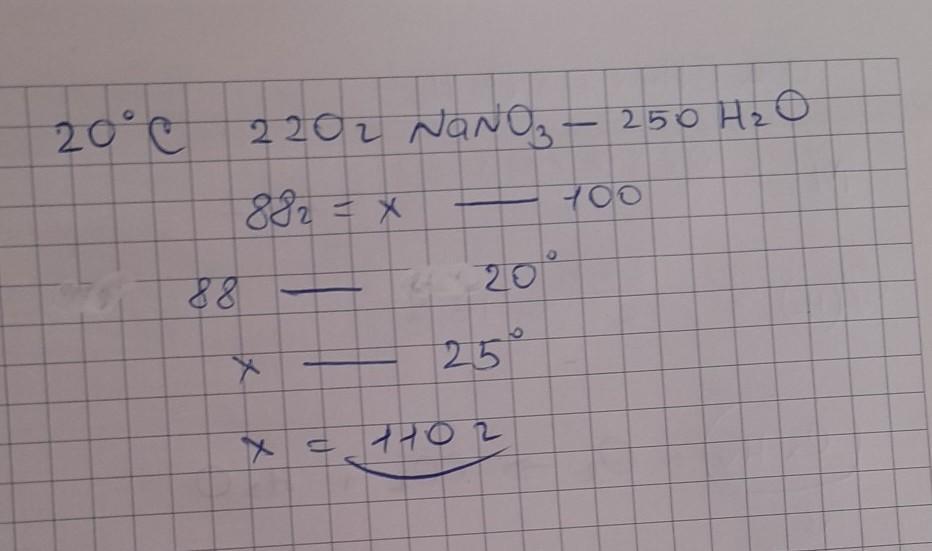 20°C 220г NaNO₃ — 250 H₂O
88г = x — 100
88 — 20°
x — 25°
x = 110г